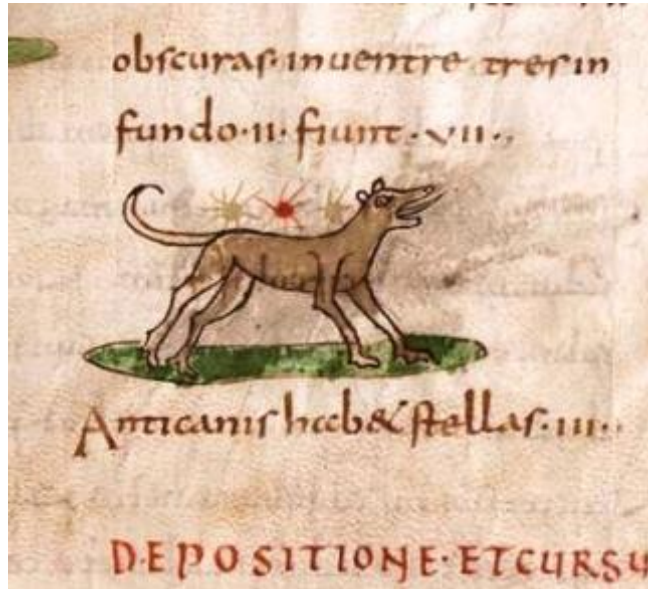 obscuras·inuentre tres in
fundo·ii·fiunt·vii·,
Anticanis hab& stellas·iii··
DEPOSITIONE·ETCURSU